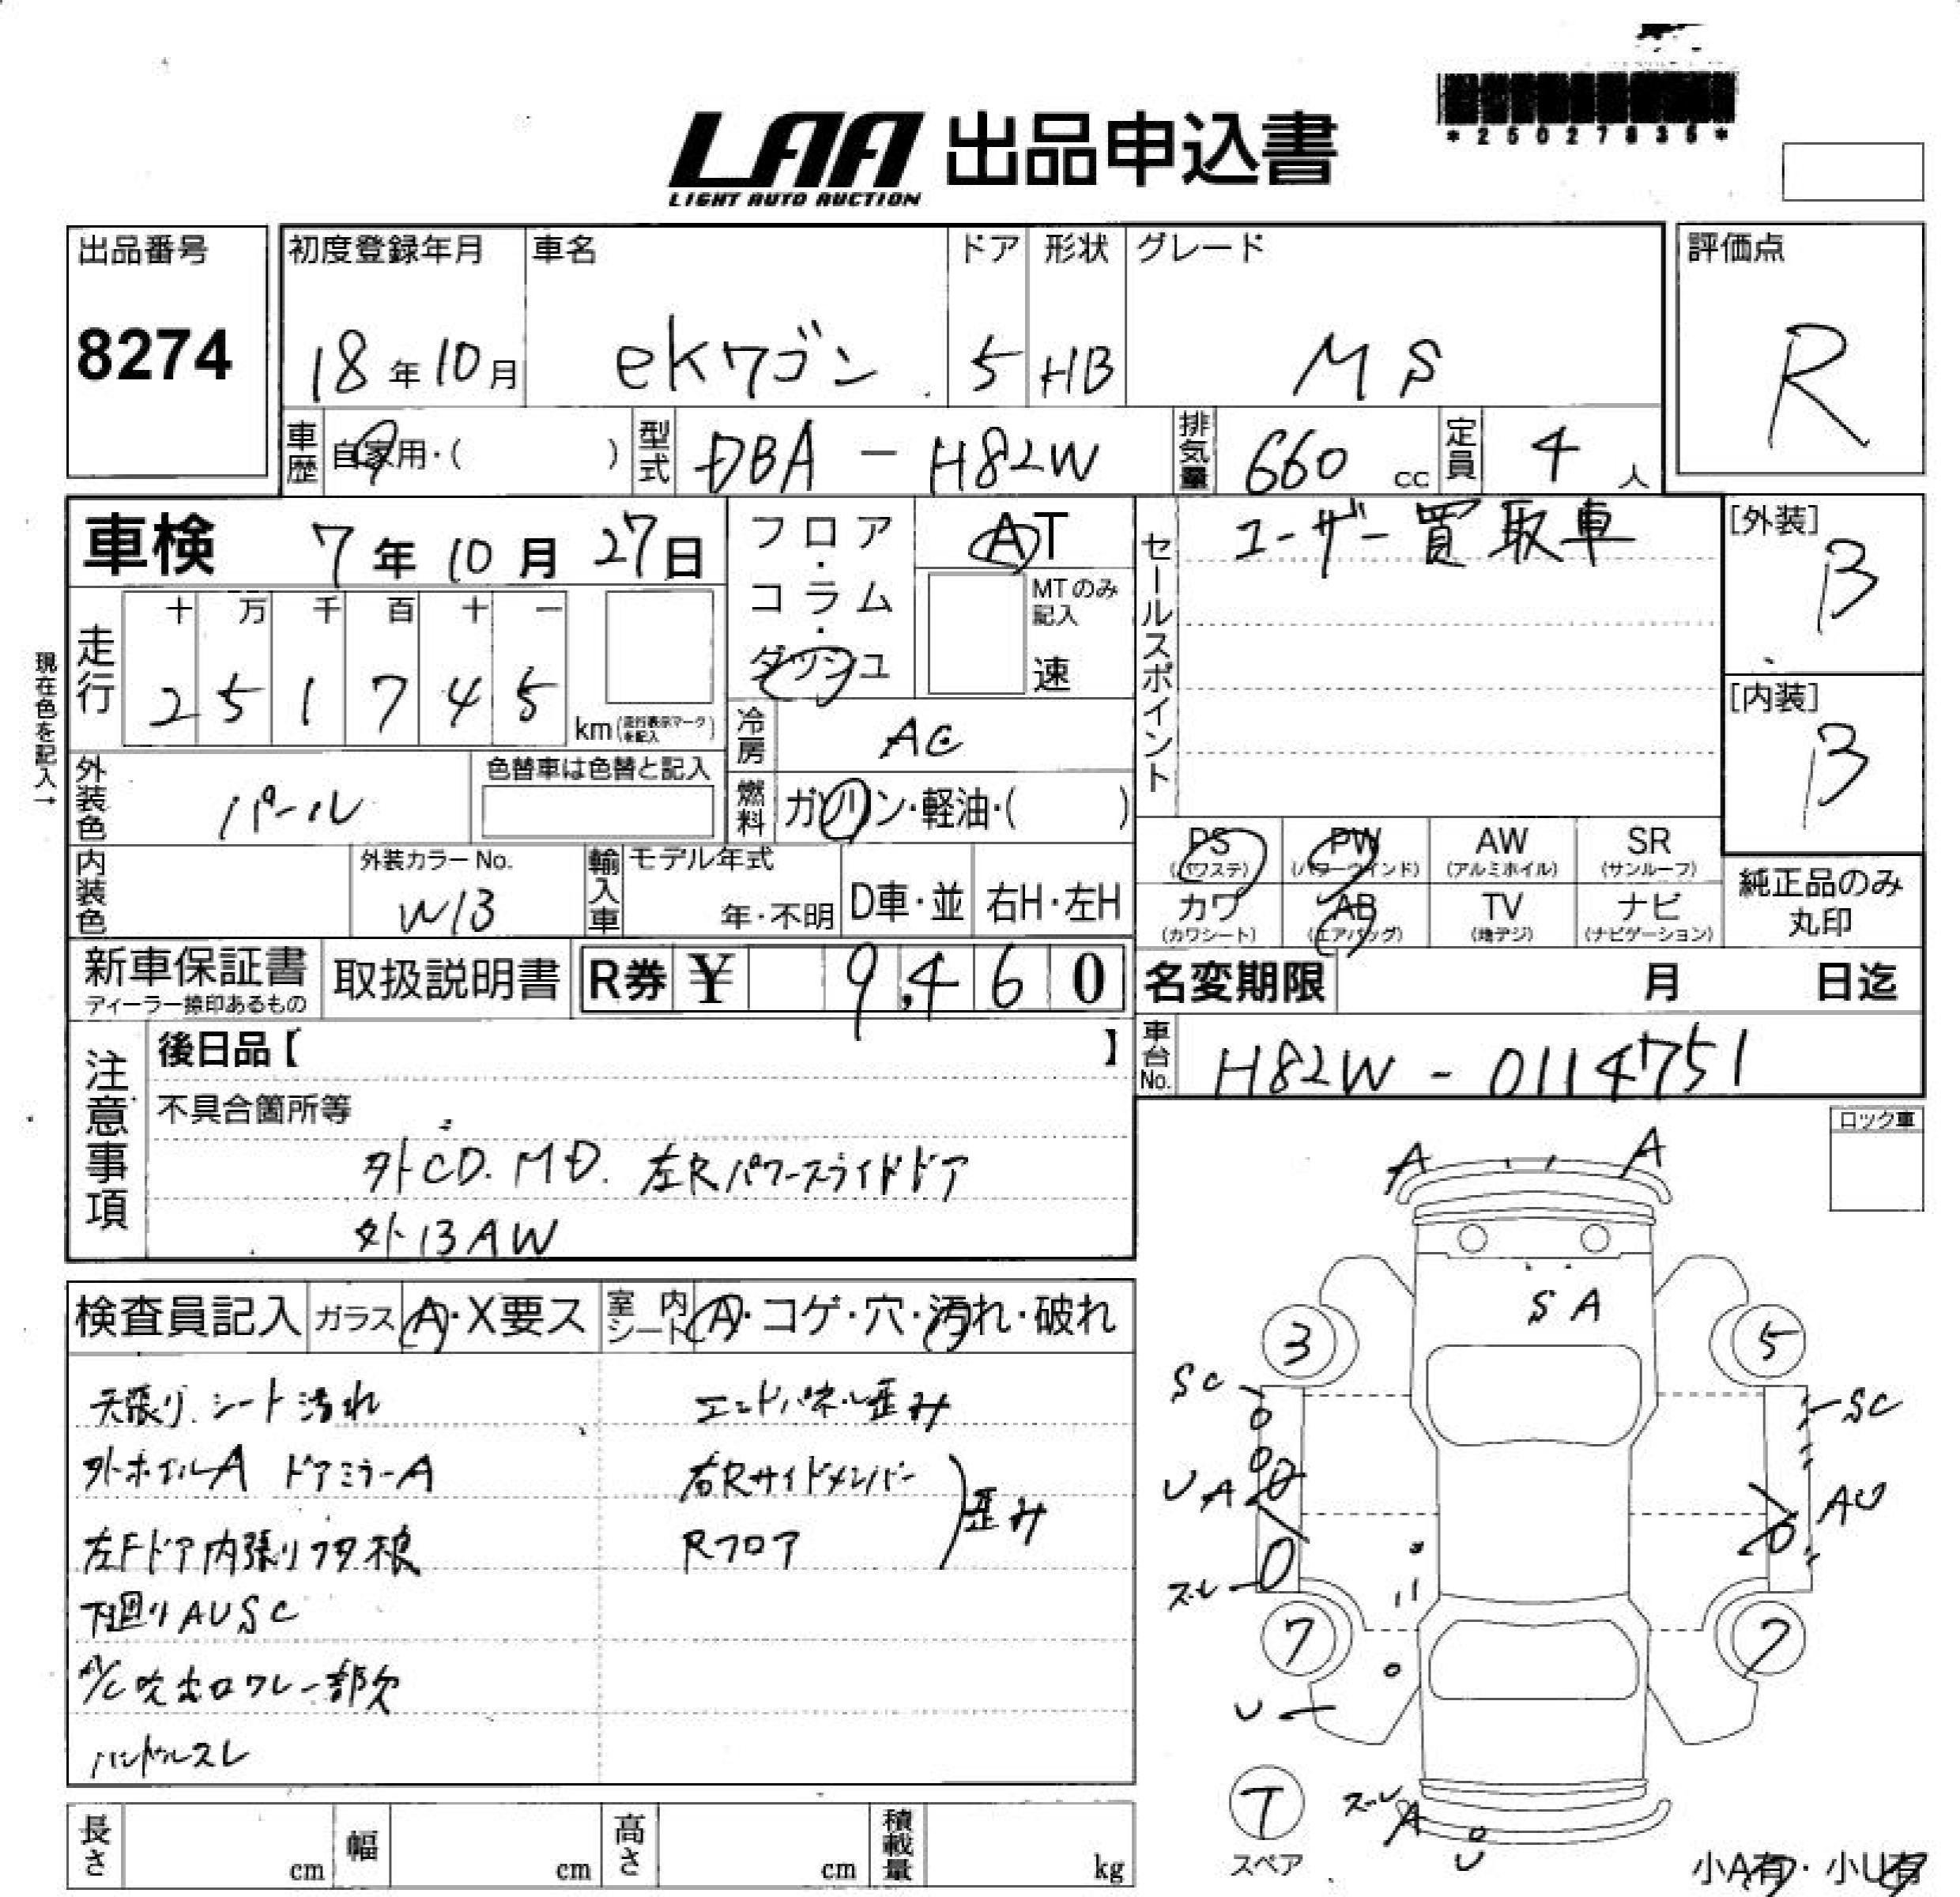 *25027835*
LAA 出品申込書
LIGHT AUTO AUCTION
出品番号
8274
初度登録年月
18年10月
車名
eKワゴン
ドア
5
形状
HB
グレード
MS
評価点
R
車歴 自家用・( )
型式 DBA - H82W
排気量 660 cc
定員 4 人
車検 7年10月27日
フロア・コラム・ダッシュ
AT
MTのみ記入
速
セールスポイント
ユーザー買取車
[外装]
B
[内装]
B
現在色を記入→
走行
十 万 千 百 十 一
2 5 1 7 4 5
km(走行表示マークを記入)
冷房 AC
外装色 パール
色替車は色替と記入
燃料 ガソリン・軽油・( )
内装色
外装カラーNo.
W13
輸入車
モデル年式
年・不明
D車・並
右H・左H
PS (パワステ)
PW (パワーウインド)
AW (アルミホイル)
SR (サンルーフ)
カワ (カワシート)
AB (エアバッグ)
TV (地デジ)
ナビ (ナビゲーション)
純正品のみ
丸印
新車保証書
ディーラー捺印あるもの
取扱説明書
R券 ¥ 9,460
名変期限 月 日迄
車台No. H82W - 0114751
注意事項
後日品【 】
不具合箇所等
外CD.MD. 左Rパワースライドドア
外13AW
ロック車
検査員記入
ガラス A・X要ス
室内シート A・コゲ・穴・汚れ・破れ
天張り.シート汚れ
外ホイルA ドアミラーA
左Fドア内張りフタ損
下廻りAUSC
A/C吹出口フレ一部欠
ハンドルスレ
エンドパネル歪み
右Rサイドメンバー
Rフロア
歪み
A A
SA
3 5
SC SC
UA AU
スレ
7 7
U
T
スペア
スレ A
U
小A有・小U有
長さ cm
幅 cm
高さ cm
積載量 kg